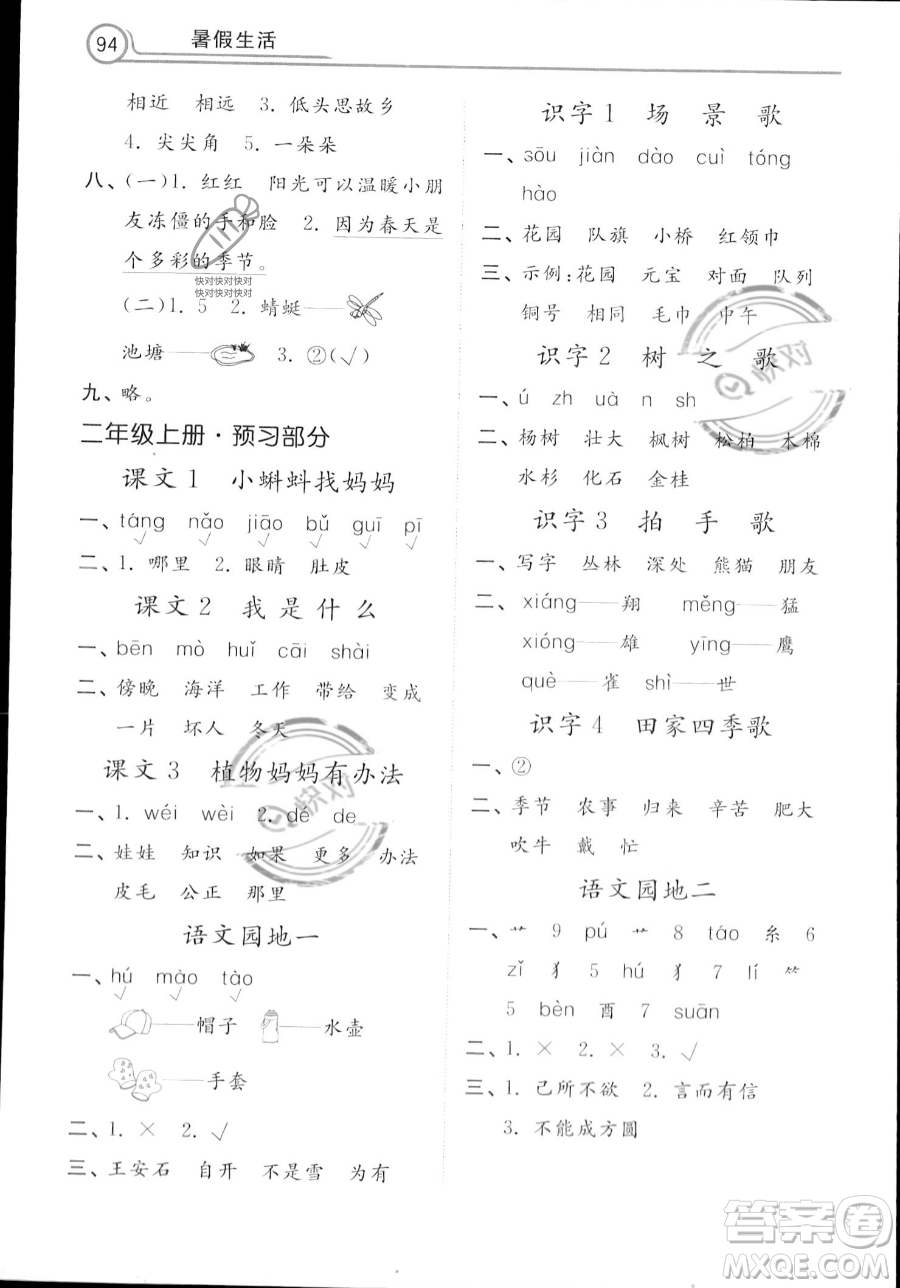 94 暑假生活
相近 相远 3. 低头思故乡
4. 尖尖角 5. 一朵朵
八、(一)1. 红红 阳光可以温暖小朋
友冻僵的手和脸 2. 因为春天是
个多彩的季节。
快对快对快对
快对快对快对
(二)1. 5 2. 蜻蜓
池塘 3. ②(√)
九、略。
二年级上册·预习部分
课文1 小蝌蚪找妈妈
一、táng nǎo jiāo bǔ guī pī
√ √ √ √
二、1. 哪里 2. 眼睛 肚皮
课文2 我是什么
一、bēn mò huǐ cāi shài
二、傍晚 海洋 工作 带给 变成
一片 坏人 冬天
课文3 植物妈妈有办法
一、1. wéi wèi 2. dé de
二、娃娃 知识 如果 更多 办法
皮毛 公正 那里
语文园地一
一、hú mào tào
√ √ √
帽子 水壶
手套
二、1. × 2. √
三、王安石 自开 不是雪 为有
识字1 场景歌
一、sōu jiàn dào cuì tóng
hào
二、花园 队旗 小桥 红领巾
三、示例:花园 元宝 对面 队列
铜号 相同 毛巾 中午
识字2 树之歌
一、ú zh uà n sh
二、杨树 壮大 枫树 松柏 木棉
水杉 化石 金桂
识字3 拍手歌
一、写字 丛林 深处 熊猫 朋友
二、xiáng 翔 měng 猛
xióng 雄 yīng 鹰
què 雀 shì 世
识字4 田家四季歌
一、②
二、季节 农事 归来 辛苦 肥大
吹牛 戴 忙
语文园地二
一、艹 9 pú 艹 8 táo 糸 6
zǐ 犭 5 hú 犭 7 lí ⺮
5 bèn 酉 7 suān
二、1. × 2. × 3. √
三、1. 己所不欲 2. 言而有信
3. 不能成方圆
快对
快对
答案圈
MXQE.COM